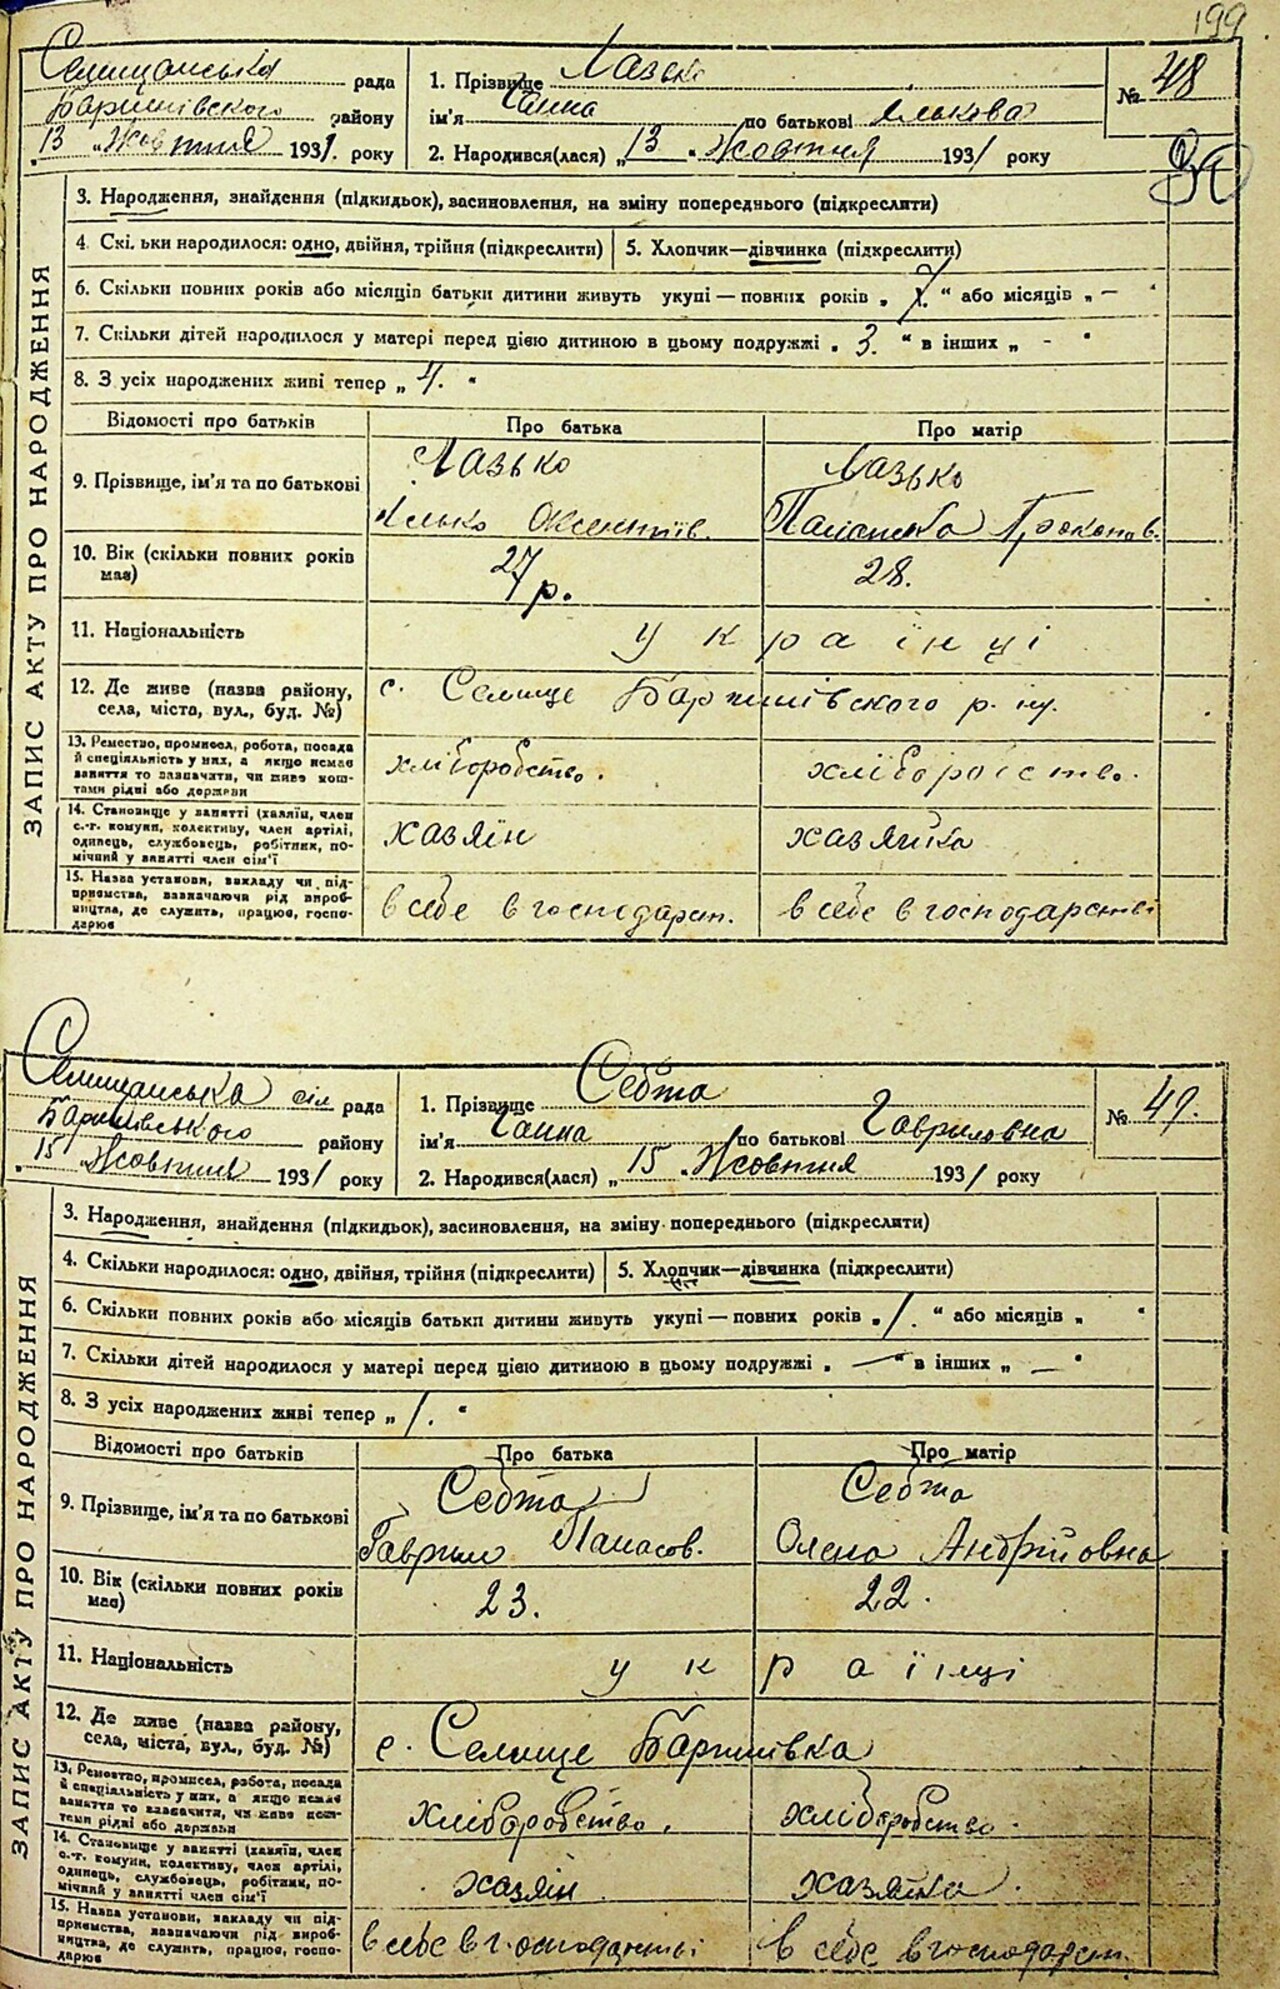 199
Селищанська рада
Баришівского району
„13 „Жовтня 1931. року
1. Прізвище Лазько
ім'я Ганна по батьковіІлькова
2. Народився(лася) „13 „Жовтня 1931 року
№ 48
ЗАПИС АКТУ ПРО НАРОДЖЕННЯ
3. Народження, знайдення (підкидьок), засиновлення, на зміну попереднього (підкреслити)
4. Скільки народилося: одно, двійня, трійня (підкреслити)
5. Хлопчик—дівчинка (підкреслити)
6. Скільки повних років або місяців батьки дитини живуть укупі — повних років „ 7. “ або місяців „ — “
7. Скільки дітей народилося у матері перед цією дитиною в цьому подружжі „ 3. “ в інших „ - “
8. З усіх народжених живі тепер „ 4. “
Відомості про батьків Про батька Про матір
9. Прізвище, ім'я та по батькові Лазько Лазько
Ілько Оксентіїв. Палажка Прокопів.
10. Вік (скільки повних років має) 27 р. 28.
11. Національність українці
12. Де живе (назва району, села, міста, вул., буд. №) с. Селище Баришівского р. ну.
13. Ремество, промисел, робота, посада
й спеціяльність у них, а якщо немає
заняття то зазначити, чи живе кош-
тами рідні або держави
хліборобство. хліборобство.
14. Становище у занятті (хазяїн, член
с.-г. комуни, колективу, член артілі,
одинець, службовець, робітник, по-
мічний у занятті член сім'ї
хазяїн хазяйка
15. Назва установи, закладу чи під-
приємства, зазначаючи рід вироб-
ництва, де служить, працює, госпо-
дарює
в себе в господарст. в себе в господарстві
Селищанська сіл рада
Баришівського району
„15 „Жовтня 1931 року
1. Прізвище Себта
ім'я Ганна по батькові Гавриловна
2. Народився(лася) „15 „Жовтня 1931 року
№ 49.
ЗАПИС АКТУ ПРО НАРОДЖЕННЯ
3. Народження, знайдення (підкидьок), засиновлення, на зміну попереднього (підкреслити)
4. Скільки народилося: одно, двійня, трійня (підкреслити)
5. Хлопчик—дівчинка (підкреслити)
6. Скільки повних років або місяців батьки дитини живуть укупі — повних років „ 1. “ або місяців „ “
7. Скільки дітей народилося у матері перед цією дитиною в цьому подружжі „ — “ в інших „ — “
8. З усіх народжених живі тепер „ 1. “
Відомості про батьків Про батька Про матір
9. Прізвище, ім'я та по батькові Себта Себта
Гаврило Панасов. Олена Андрійовна
10. Вік (скільки повних років має) 23. 22.
11. Національність українці
12. Де живе (назва району, села, міста, вул., буд. №) с. Селище Баришівка
13. Ремество, промисел, робота, посада
й спеціяльність у них, а якщо немає
заняття то зазначити, чи живе кош-
тами рідні або держави
хліборобство. хліборобство.
14. Становище у занятті (хазяїн, член
с.-г. комуни, колективу, член артілі,
одинець, службовець, робітник, по-
мічний у занятті член сім'ї
хазяїн хазяйка.
15. Назва установи, закладу чи під-
приємства, зазначаючи рід вироб-
ництва, де служить, працює, госпо-
дарює
в себе в господарстві в себе в господарст.